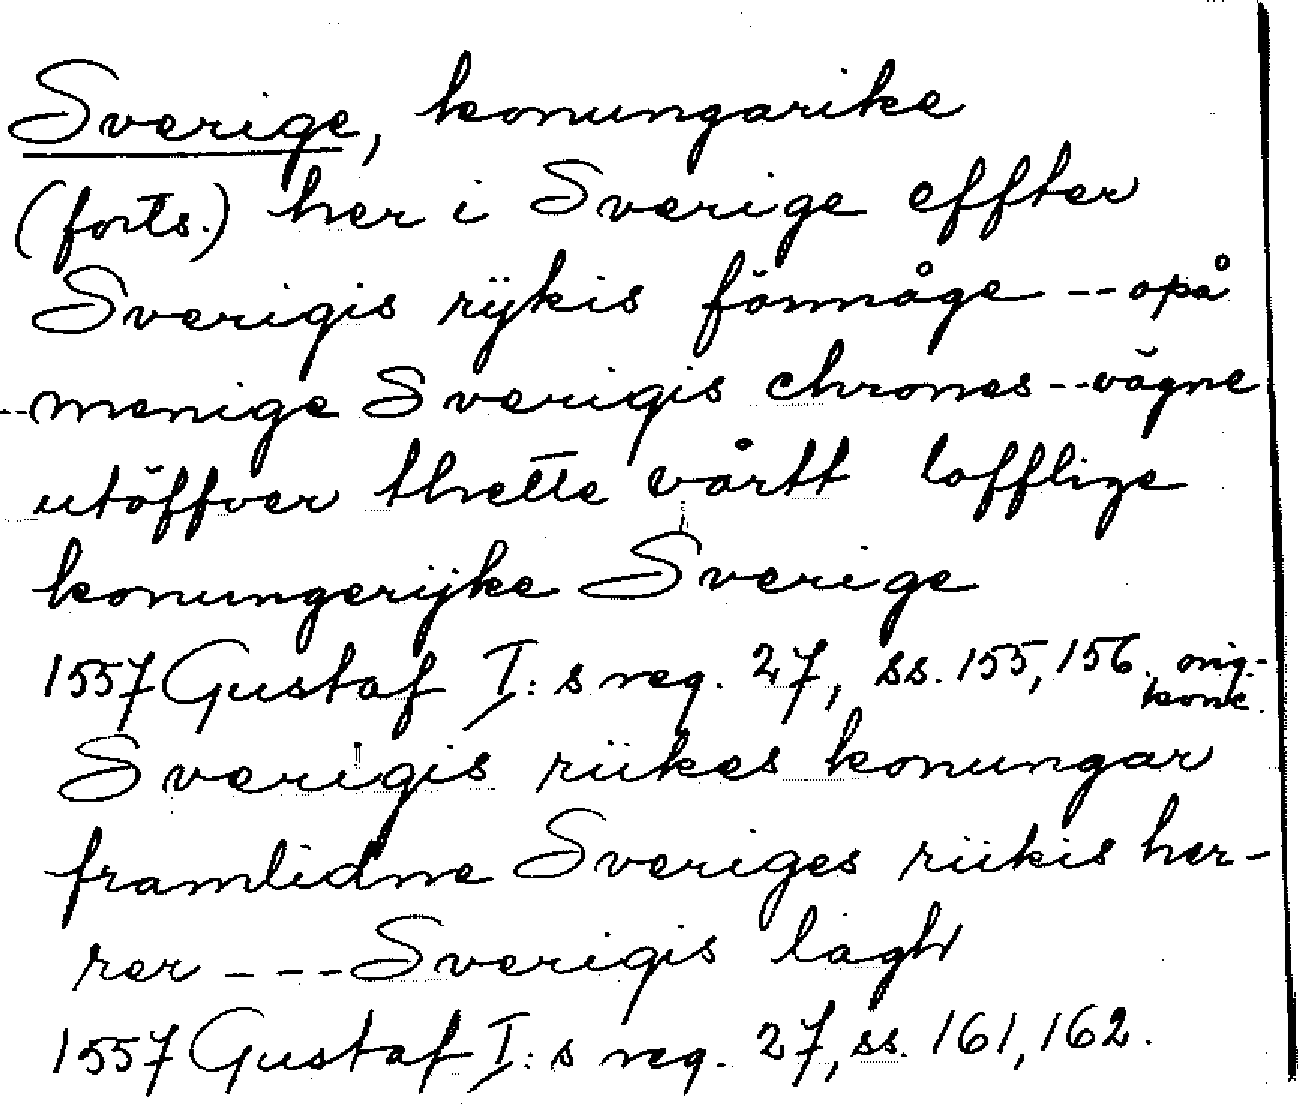 Sverige, konungarike
(forts.) her i Sverige effter
Sverigis rÿkis förmåge -- opå
-- menige Sverigis chrones -- vägne
utöffver thette vårtt lofflige
konungerijke Sverige
1557 Gustaf I:s reg. 27, ss. 155, 156, orig.-
konc.
Sverigis riikes konungar
framlidne Sveriges riikis her-
rer --- Sverigis lagh
1557 Gustaf I:s reg. 27, ss. 161, 162.